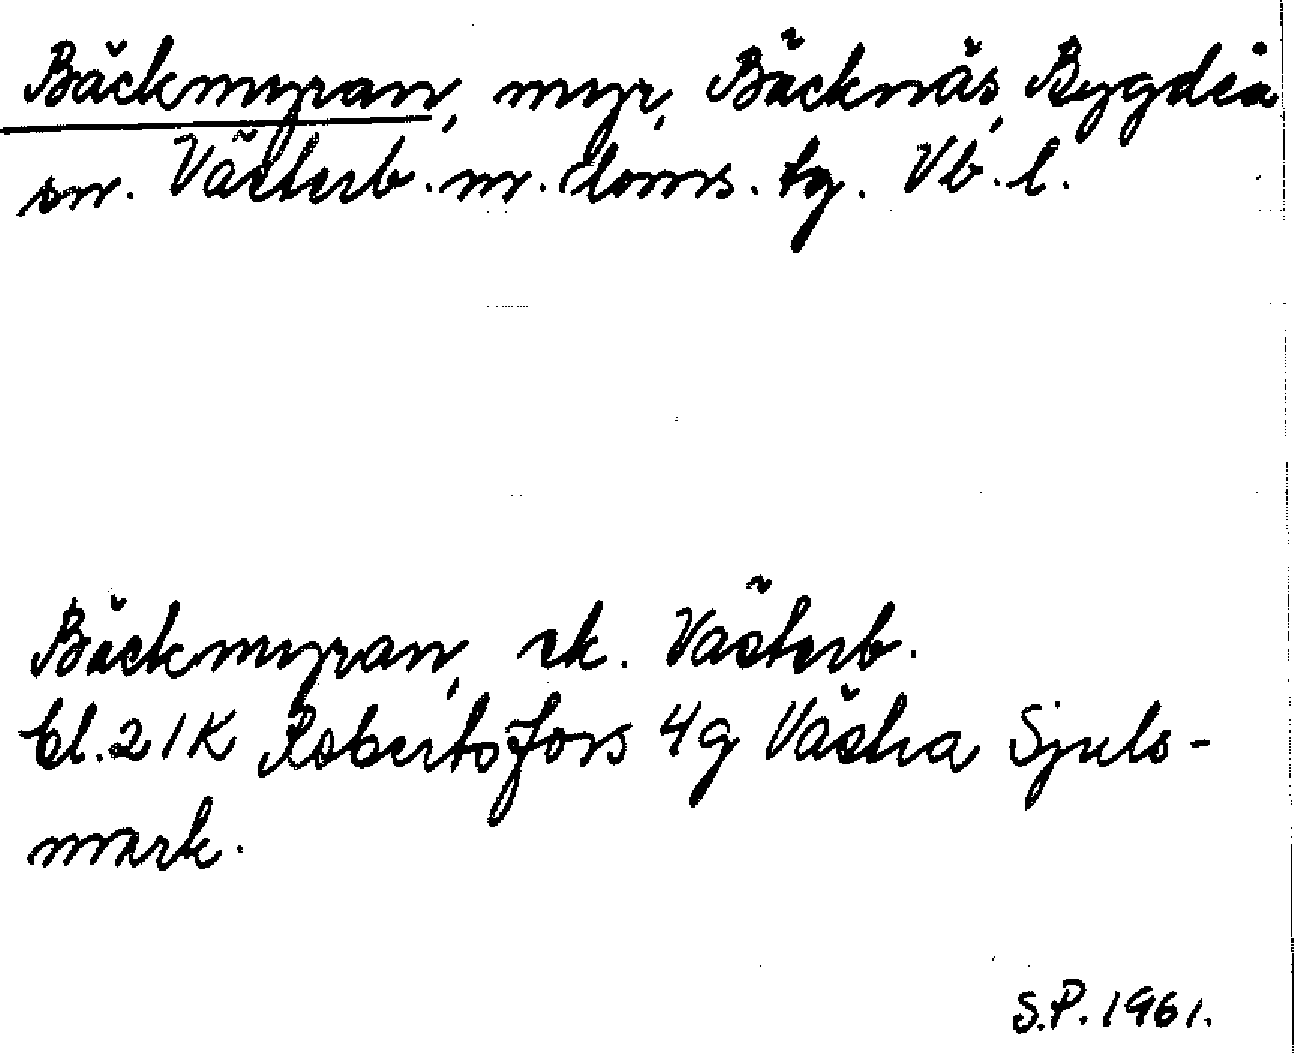 Bäckmyran, myr, Bäcknäs, Bygdeå
sn. Västerb. n. doms. tg. Vb. l.
Bäckmyran, ek. Västerb.
bl. 21K Robertsfors 4g Västra Sjuls-
mark.
S.P. 1961.